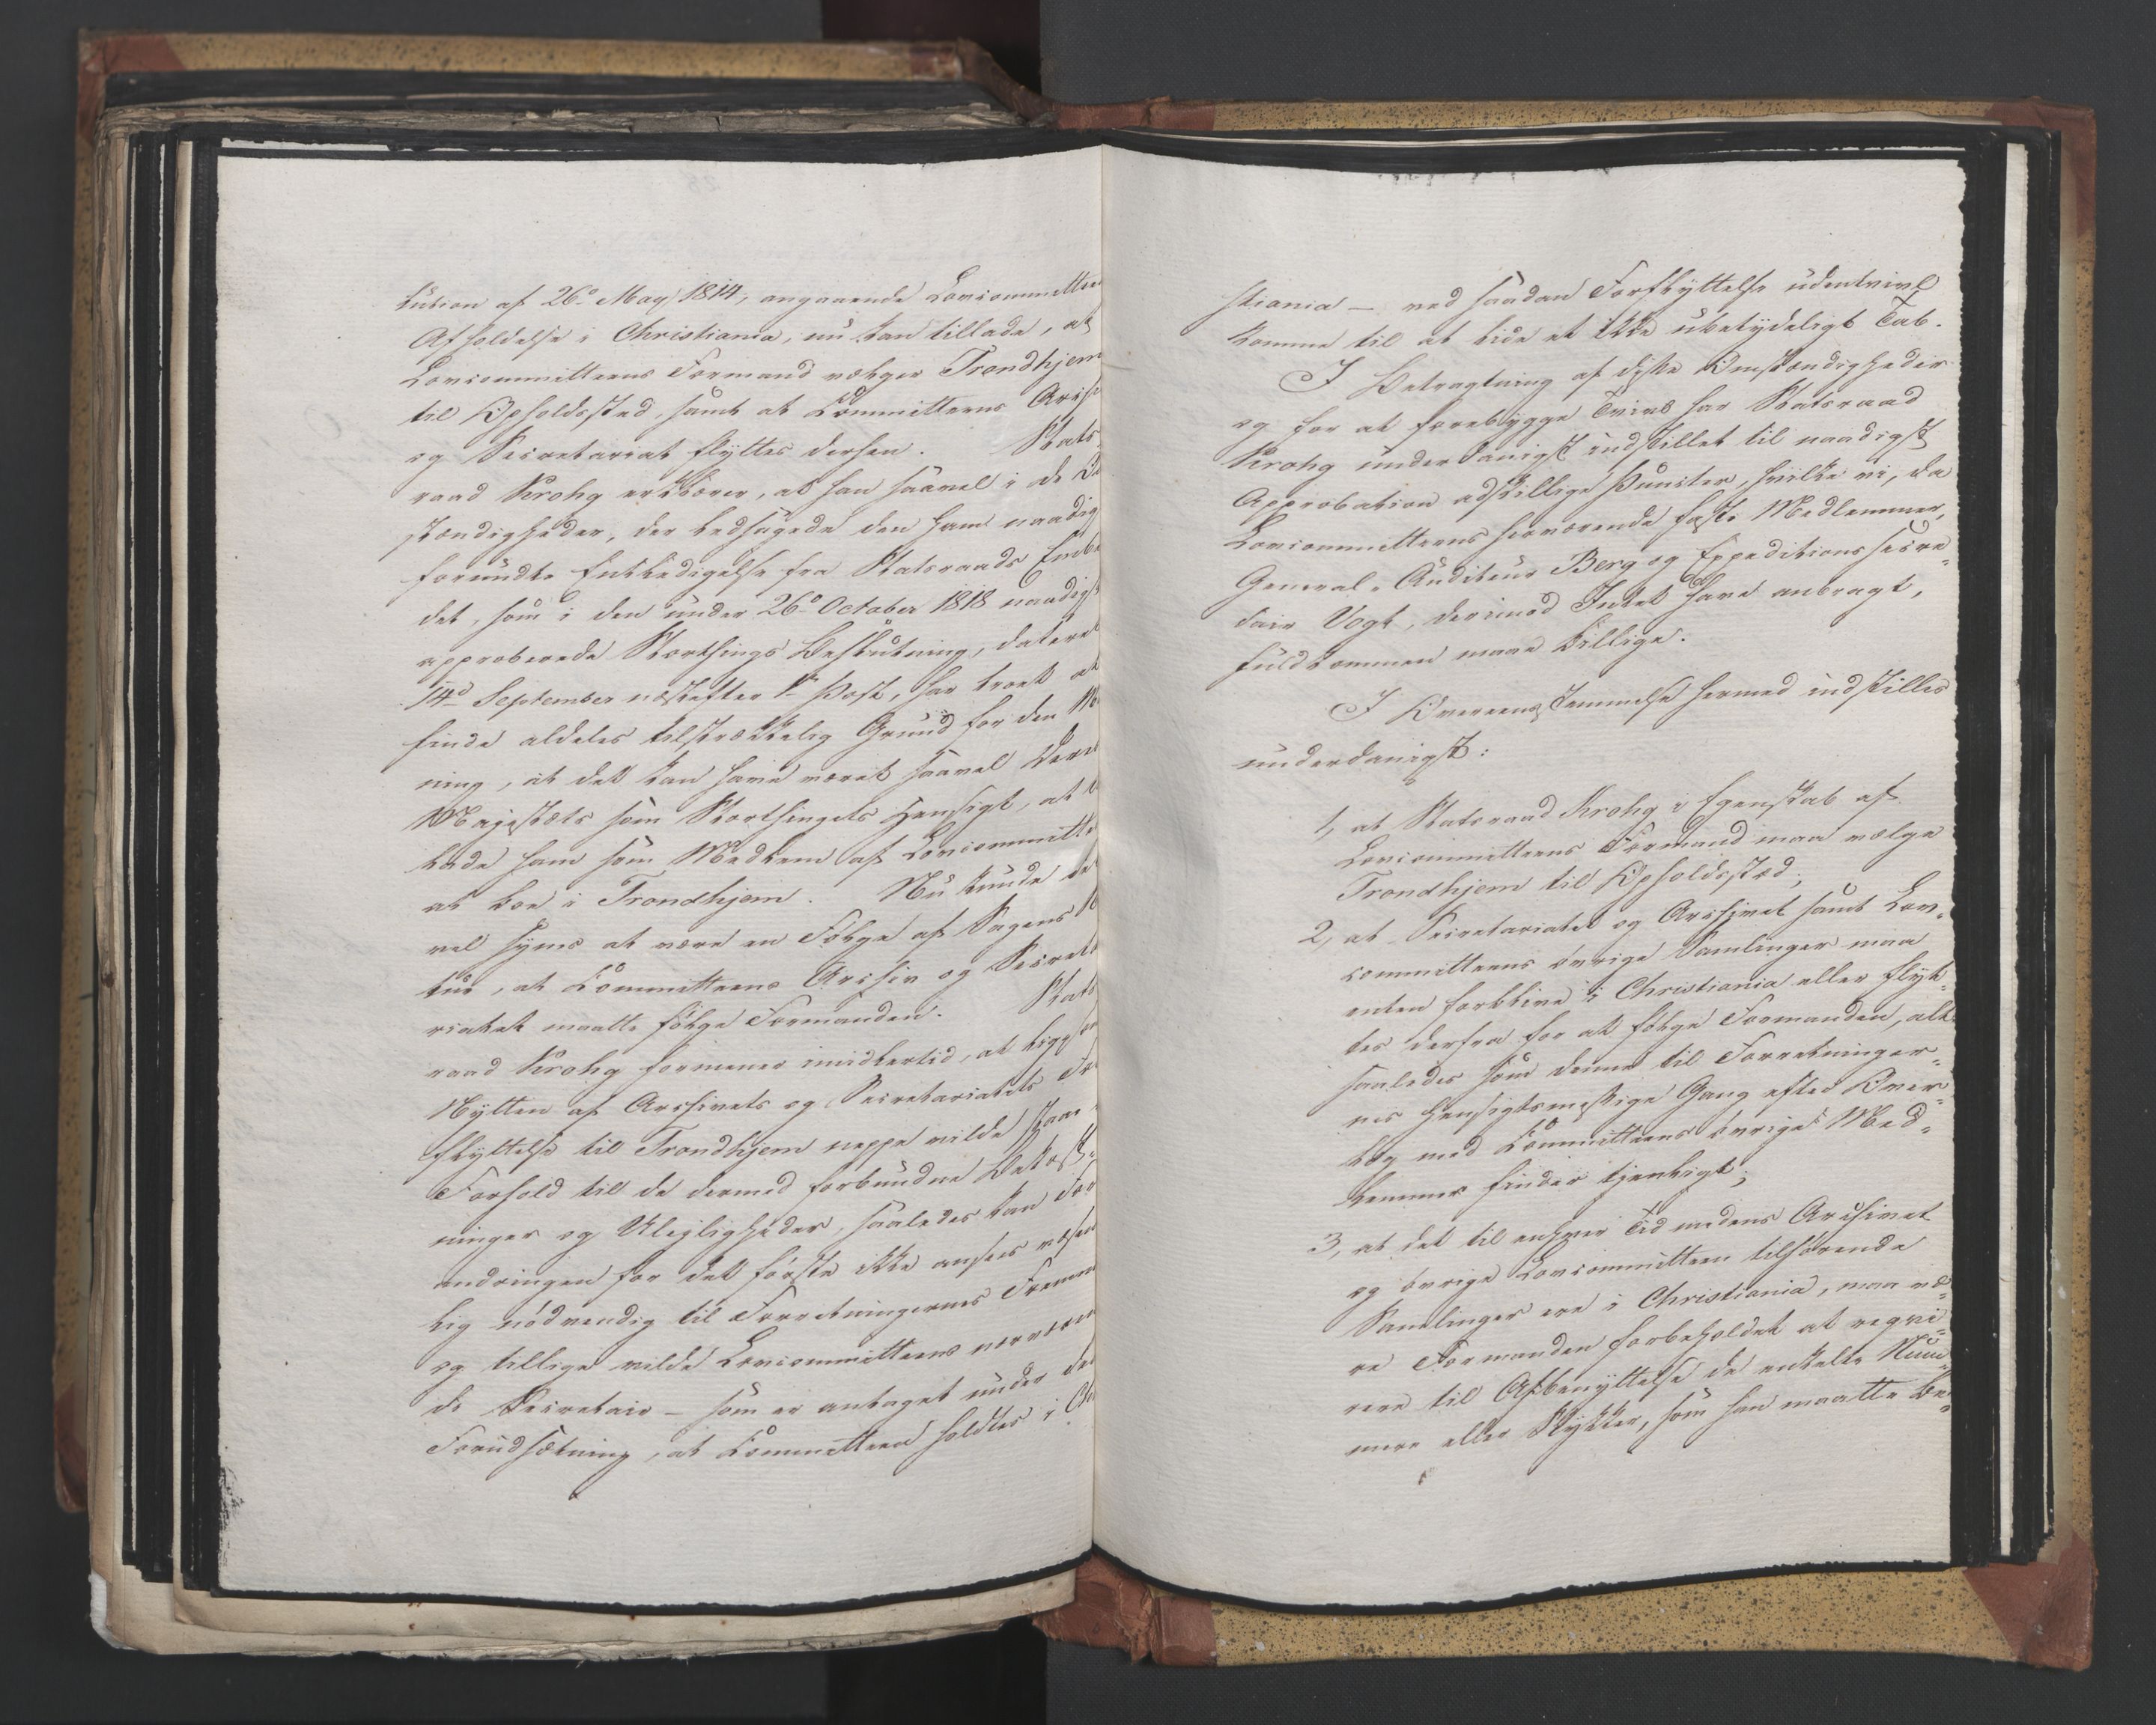 lution af 26de May 1814, angaaende Lovcommitteens
Afholdelse i Christiania, nu kan tillade, at
Lovcommitteens Formand vælger Trondhjem
til Opholdssted, samt at Committeens Archi
og Secretariat flyttes derhen. Stats-
raad Krohg erklærer, at han saavel i de Om
stændigheder, der ledsagede den ham naadig
forundte Entledigelse fra Statsraads Embe
det, som i den under 26de October 1818 naadigst
approberede Storthings Beslutning, dateret
14de September næstefter 1ste Post, har troet at
finde aldeles tilstrækkelig Grund for den Me
ning, at det kan have været saavel Deres
Majestæts som Storthingets Hensigt, at til
lade ham som Medlem af Lovcommitteen
at boe i Trondhjem. Nu kunde det
vel synes at være en Følge af Sagens Na
tur, at Committeens Archiv og Secreta
riatet maatte følge Formanden. Stats
raad Krohg formener imidlertid, at ligesom
Nytten af Archivets og Secretariatets For
flyttelse til Trondhjem neppe vilde staae i
Forhold til de dermed forbundne Bekost-
ninger og Uleiligheder, saaledes kan For
andringen for det første ikke ansees væsent
lig nødvendig til Forretningernes Fremme
og tillige vilde Lovcommitteens nærværen
de Secretair – som er antaget under den
Forudsætning, at Committeen holdtes i Chri
stiania – ved saadan Forflyttelse udentvivl
komme til at lide et ikke ubetydeligt Tab.
I Betragtning af disse Omstændigheder
og for at forebygge Tvivl har Statsraad
Krohg underdanigst indstillet til naadigst
Approbation adskillige Puncter, hvilke vi, da
Lovcommitteens herværende faste Medlemmer,
General-Auditeur Berg og Expeditionssecre-
tair Vogt, derimod Intet have anbragt,
fuldkommen maae billige.
I Overeensstemmelse hermed indstilles
underdanigst:
1, at Statsraad Krohg i Egenskab af
Lovcommitteens Formand maa vælge
Trondhjem til Opholdssted;
2, at Secretariatet og Archivet samt Lov-
committeens øvrige Samlinger maa
enten forblive i Christiania eller flyt-
tes derfra for at følge Formanden, alt
saaledes som denne til Forretninger-
nes hensigtsmæssige Gang efter Over-
læg med Committeens øvrige Med-
lemmer finder tjenligt;
3, at det til enhver Tid medens Archivet
og øvrige Lovcommitteen tilhørende
Samlinger ere i Christiania, maa væ-
re Formanden forbeholdet at reqvi-
rere til Afbenyttelse de enkelte Num-
mere eller Stykker, som han maatte be-